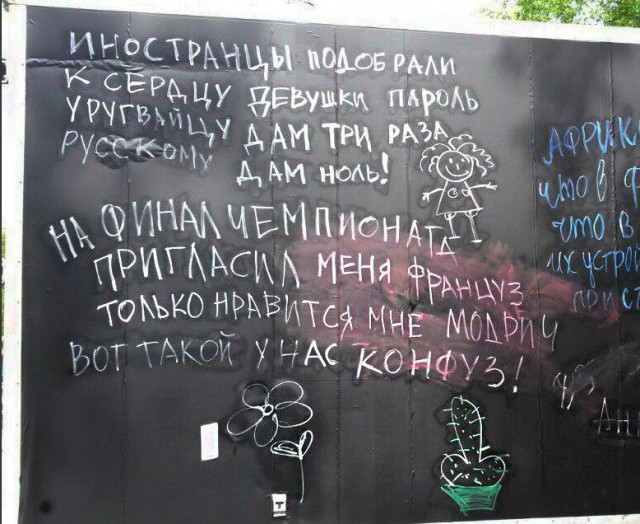 ИНОСТРАНЦЫ ПОДОБРАЛИ
К СЕРДЦУ ДЕВУШКИ ПАРОЛЬ
УРУГВАЙЦУ ДАМ ТРИ РАЗА
РУССКОМУ ДАМ НОЛЬ!
НА ФИНАЛ ЧЕМПИОНАТА
ПРИГЛАСИЛ МЕНЯ ФРАНЦУЗ
ТОЛЬКО НРАВИТСЯ МНЕ МОДРИЧ
ВОТ ТАКОЙ У НАС КОНФУЗ!
АФРИК
что в
что в
их устро